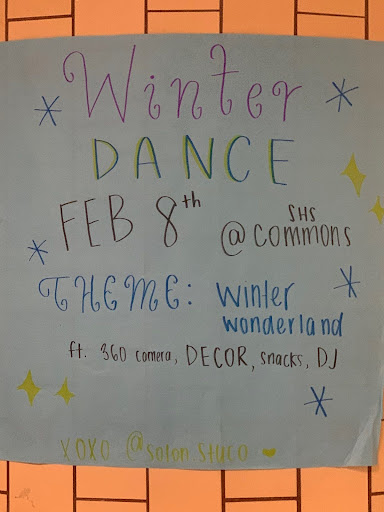 Winter
DANCE
FEB 8th @ SHS COMMONS
THEME: winter
wonderland
ft. 360 camera, DECOR, snacks, DJ
XOXO @solon stuco